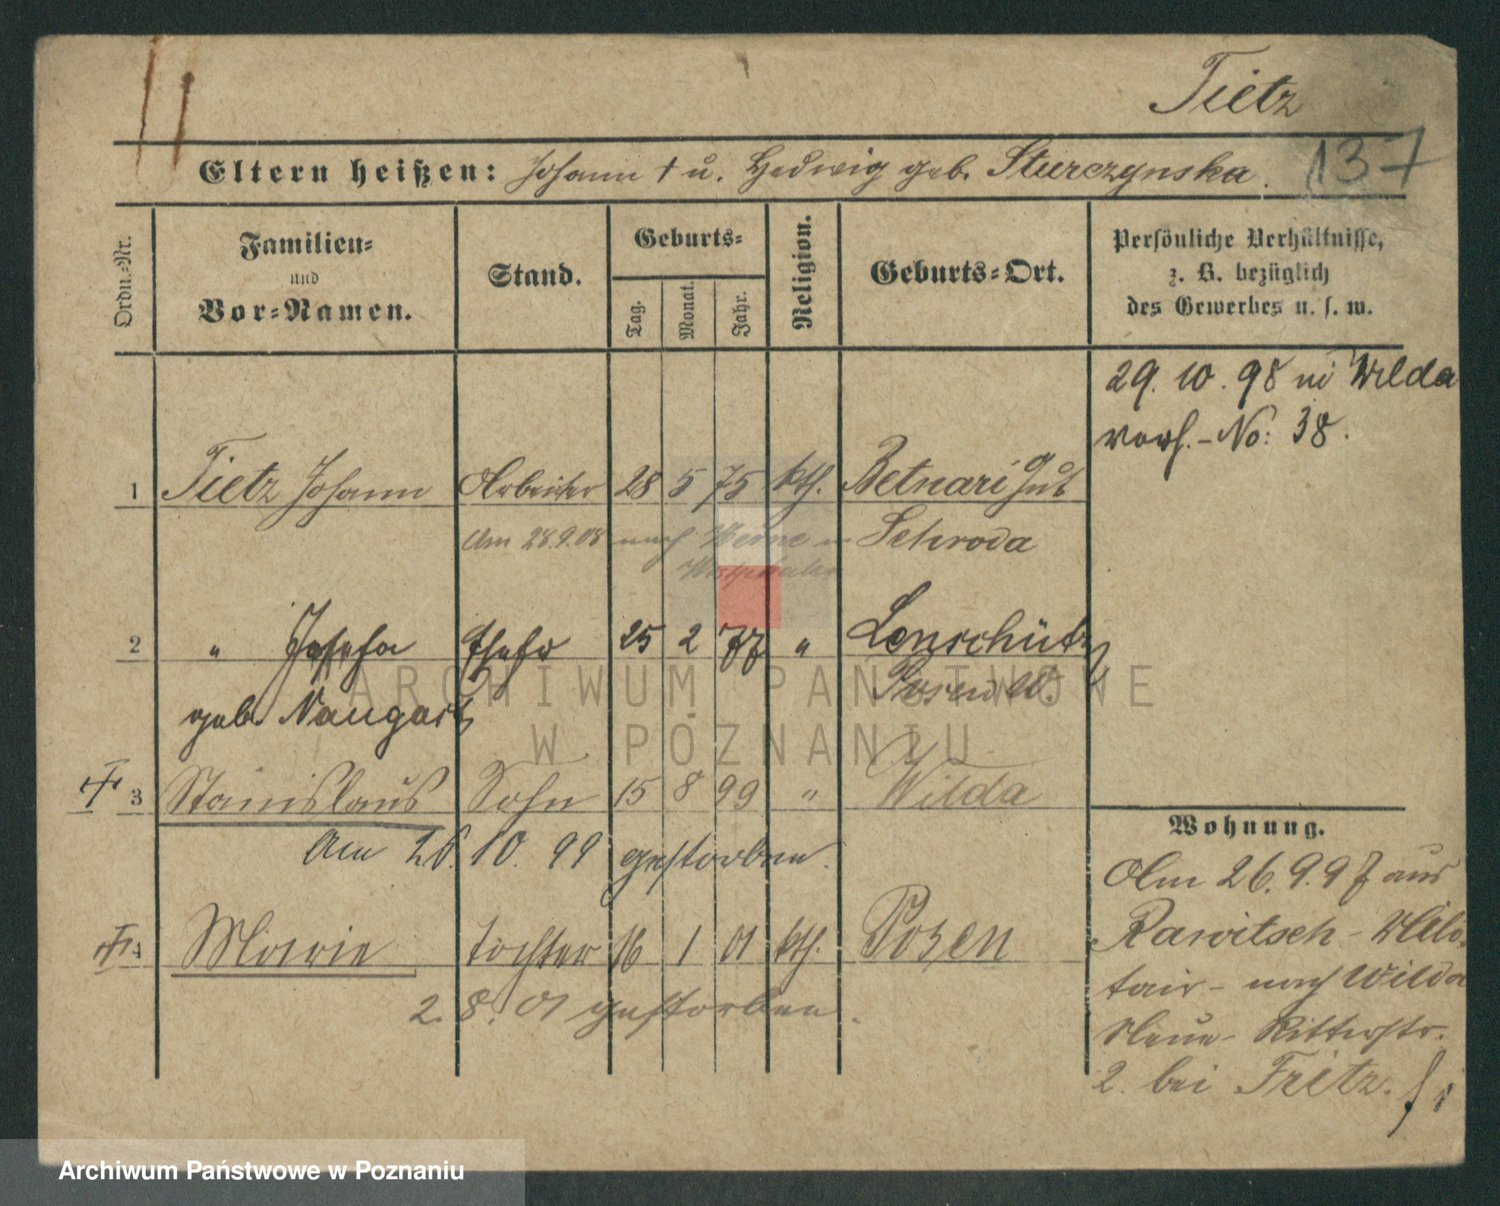 Tietz
137
Eltern heißen: Johann † u. Hedwig geb. Sturczynska.
Ordn.-Nr.
Familien-
und
Vor-Namen.
Stand.
Geburts-
Tag.
Monat.
Jahr.
Religion.
Geburts-Ort.
Persönliche Verhältnisse,
z. B. bezüglich
des Gewerbes u. s. w.
29. 10. 98 in Wilda
verh. - No: 38.
1 Tietz Johann Arbeiter 28 5 75 kth. Betnari Gut
Am 28.9.08 nach Herne in Schroda
Westphalen
2 " Josefa Ehefr 25 2 77 " Lenschütz
geb. Naugart Posen W.
3 Stanislaus Sohn 15 8 99 " Wilda
Am 26. 10. 99 gestorben.
4 Marie Tochter 16 1 01 kth. Posen
2. 8. 01 gestorben.
Wohnung.
Am 26. 9. 97 aus
Rawitsch - Mili-
tair - nach Wilda
Neue - Ritterstr.
2. bei Fritz.
ARCHIWUM PAŃSTWOWE
W POZNANIU
Archiwum Państwowe w Poznaniu